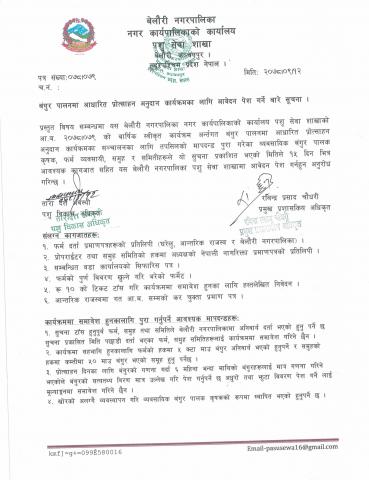 बेलौरी नगरपालिका
नगर कार्यपालिकाको कार्यालय
पशु सेवा शाखा
बेलौरी, कञ्चनपुर
सुदूरपश्चिम प्रदेश नेपाल ।
पत्र संख्या:०७८/०७९
मिति: २०७८/०९/१२
च.नं. :
बंगुर पालनमा आधारित प्रोत्साहन अनुदान कार्यक्रमका लागि आवेदन पेश गर्ने बारे सूचना ।
प्रस्तुत विषय सम्बन्धमा यस बेलौरी नगरपालिका नगर कार्यपालिकाको कार्यालय पशु सेवा शाखाको
आ.व. २०७८/०७९ को बार्षिक स्वीकृत कार्यक्रम अर्न्तगत बंगुर पालनमा आधारित प्रोत्साहन
अनुदान कार्यक्रमका सञ्चालनका लागि तपसिलको मापदण्ड पुरा गरेका व्यवसायिक बंगुर पालक
कृषक, फर्म व्यवसायी, समुह र समितीहरूले यो सुचना प्रकाशित भएको मितिले १५ दिन भित्र
आवश्यक कागजात सहित यस बेलौरी नगरपालिका पशु सेवा शाखामा आवेदन पेश गर्नहुन अनुरोध
गरिन्छ ।
तारा दत्त अवस्थी
पशु विकास अधिकृत
रविन्द्र प्रसाद चौधरी
प्रमुख प्रशासकिय अधिकृत
संलग्न कागजातहरू:
१. फर्म दर्ता प्रमाणपत्रहरूको प्रतिलिपी (घरेलु, आन्तरिक राजस्व र बेलौरी नगरपालिका) ।
२. प्रोपराईटर तथा समुह समितिको हकमा अध्यक्षको नेपाली नागरिक्ता प्रमाणपत्रको प्रतिलिपी ।
३. सम्बन्धित वडा कार्यालयको सिफारिस पत्र ।
४. फर्मको पुर्ण बिवरण खुल्ने गरि बरेको फर्मेट ।
५. रू १० को टिकट टाँस गरि कार्यक्रममा समावेश हुनका लागि हस्तलेखित निवेदन ।
६. आन्तरिक राजस्वमा गत आ.व. सम्मको कर चुक्ता प्रमाण पत्र ।
कार्यक्रममा समावेश हुनकालागि पुरा गर्नुपर्ने आवश्यक मापदण्डहरू:
१. सुचना टाँस हुनुपुर्व फर्म, समुह तथा समितिले बेलौरी नगरपालिकामा अनिवार्य दर्ता भएको हुनु पर्ने छ
सुचना प्रकाशित मिति पछाडी दर्ता भएका फर्म, समुह समितिहरूलाई कार्यक्रममा समावेश गरिने छैन ।
२. कार्यक्रम सहभागि हुनकालागि फर्मको हकमा ५ वटा माउ बंगुर अनिवार्य भएको हुनुपर्ने र समुहको
हकमा कम्तीमा ५० माउ बंगुर भएको समुह हुनु पर्नेछ ।
३. प्रोत्साहन दिनका लागि बंगुरको गणना गर्दा ६ महिना भन्दा माथिको बंगुरहरूलाई मात्र गणना गरिने
भएकोले बंगुरको सत्यतथ्य विरण मात्र उल्लेख गरि पेश गर्नुपर्ने छ अधुरो तथा झुटा बिवरण पेश गर्ने लाई
मुल्याङ्कनमा समावेश गरिने छैन ।
४. खोरको अलग्गै व्यवस्थापन गरि व्यवसायिक बंगुर पालक कृषकको रूपमा स्थापित भएको हुनुपर्ने छ ।
kmf]=g+=099É580016
Email-pasusewa16@gmail.com